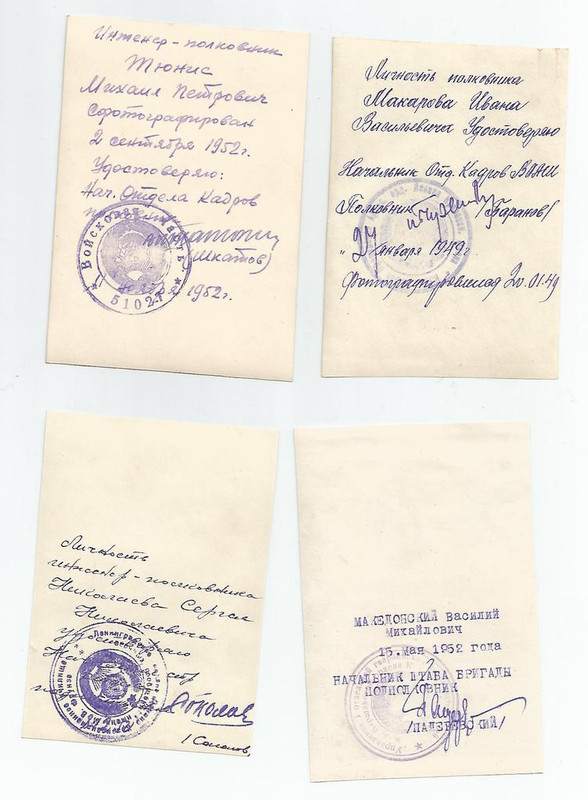 Инженер-полковник
Тюнис
Михаил Петрович
Сфотографирован
2 сентября 1952 г.
Удостоверяю:
Нач. Отдела Кадров
Войсковая часть
51027
1952 г.
Личность полковника
Макарова Ивана
Васильевича Удостоверяю
Начальник Отд. Кадров
Полковник /Баранов/
"27" января 1949 г.
Фотографировался 20.01.49
Личность
инженер-полковника
Николаева Сергея
Николаевича
удостоверяю
МАКЕДОНСКИЙ Василий
Михайлович
15 мая 1952 года
НАЧАЛЬНИК ШТАБА БРИГАДЫ
ПОДПОЛКОВНИК
/ПАДЕРЕВСКИЙ/